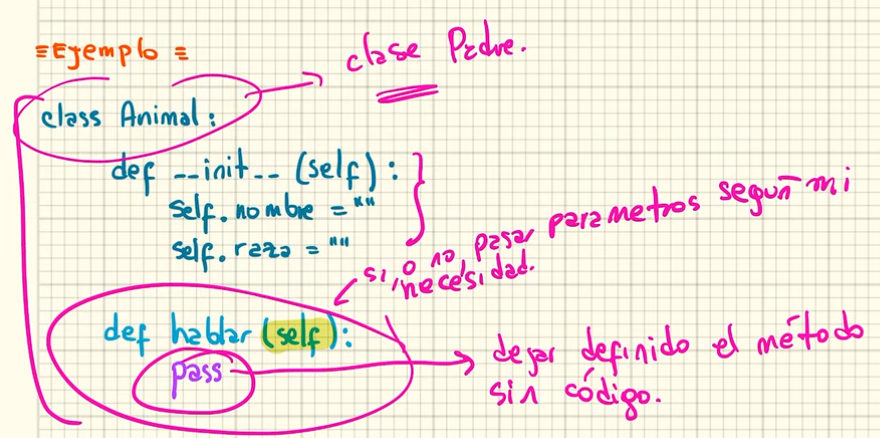 =Ejemplo=
clase Padre.
class Animal:
def __init__(self):
self.nombre = ""
self.raza = ""
si, o no, pasar parametros según mi
necesidad.
def hablar (self):
pass
dejar definido el método
sin código.